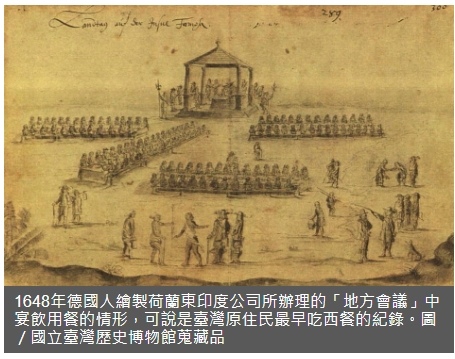 Landtag auf der Insul Formosa
289
1648年德國人繪製荷蘭東印度公司所辦理的「地方會議」中
宴飲用餐的情形，可說是臺灣原住民最早吃西餐的紀錄。圖
／國立臺灣歷史博物館蒐藏品